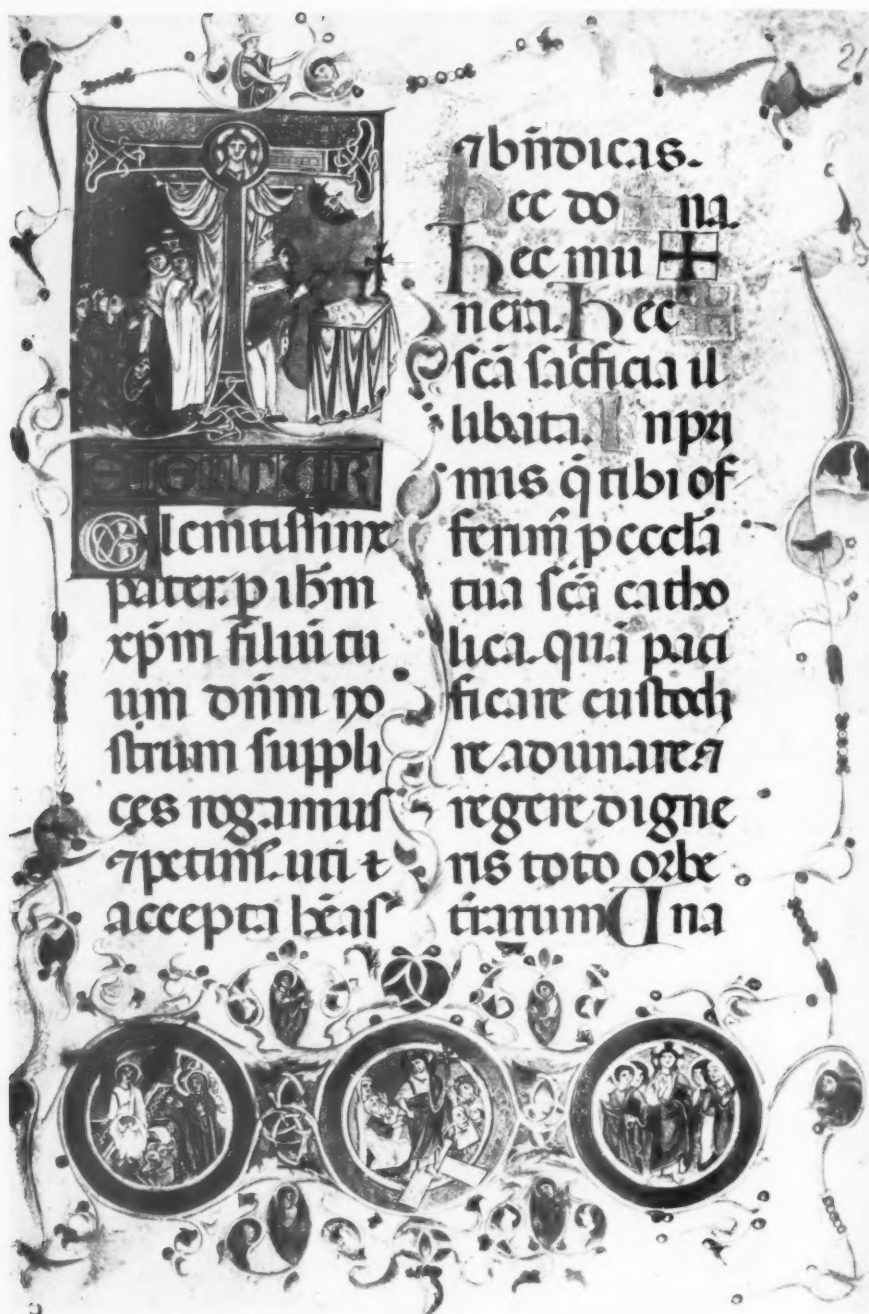 21
T
EIGITUR
Clemtissime
pater. p ihm
xp̄m filiũ tu
um dñm no
strum suppli
ces rogamus
⁊ petimꝰ. uti ⁊
accepta hẽas
⁊ bñdicas.
hec do ✠ na.
hec mu ✠
nera. hec ✠
scã sac̃ficia il
libata. Inpri
mis q̃ tibi of
ferim̃ p eccl̃a
tua scã catho
lica. quã paci
ficare custodi
re adunare ⁊
regere digne
ris toto orbe
t̃rarum Una